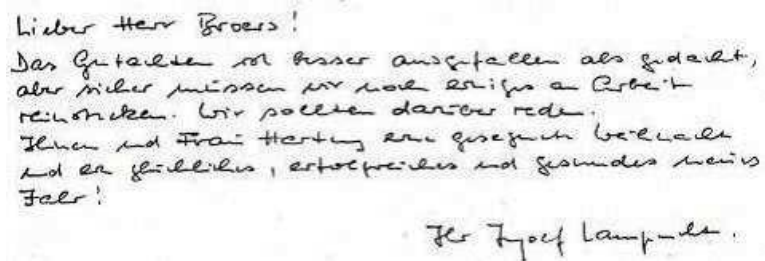 Lieber Herr Broers!
Das Gutachten ist besser ausgefallen als gedacht,
aber sicher müssen wir noch einiges an Arbeit
reinstecken. Wir sollten darüber reden.
Ihnen und Frau Hartung eine gesegnete Weihnacht
und ein glückliches, erfolgreiches und gesundes neues
Jahr!
Ihr